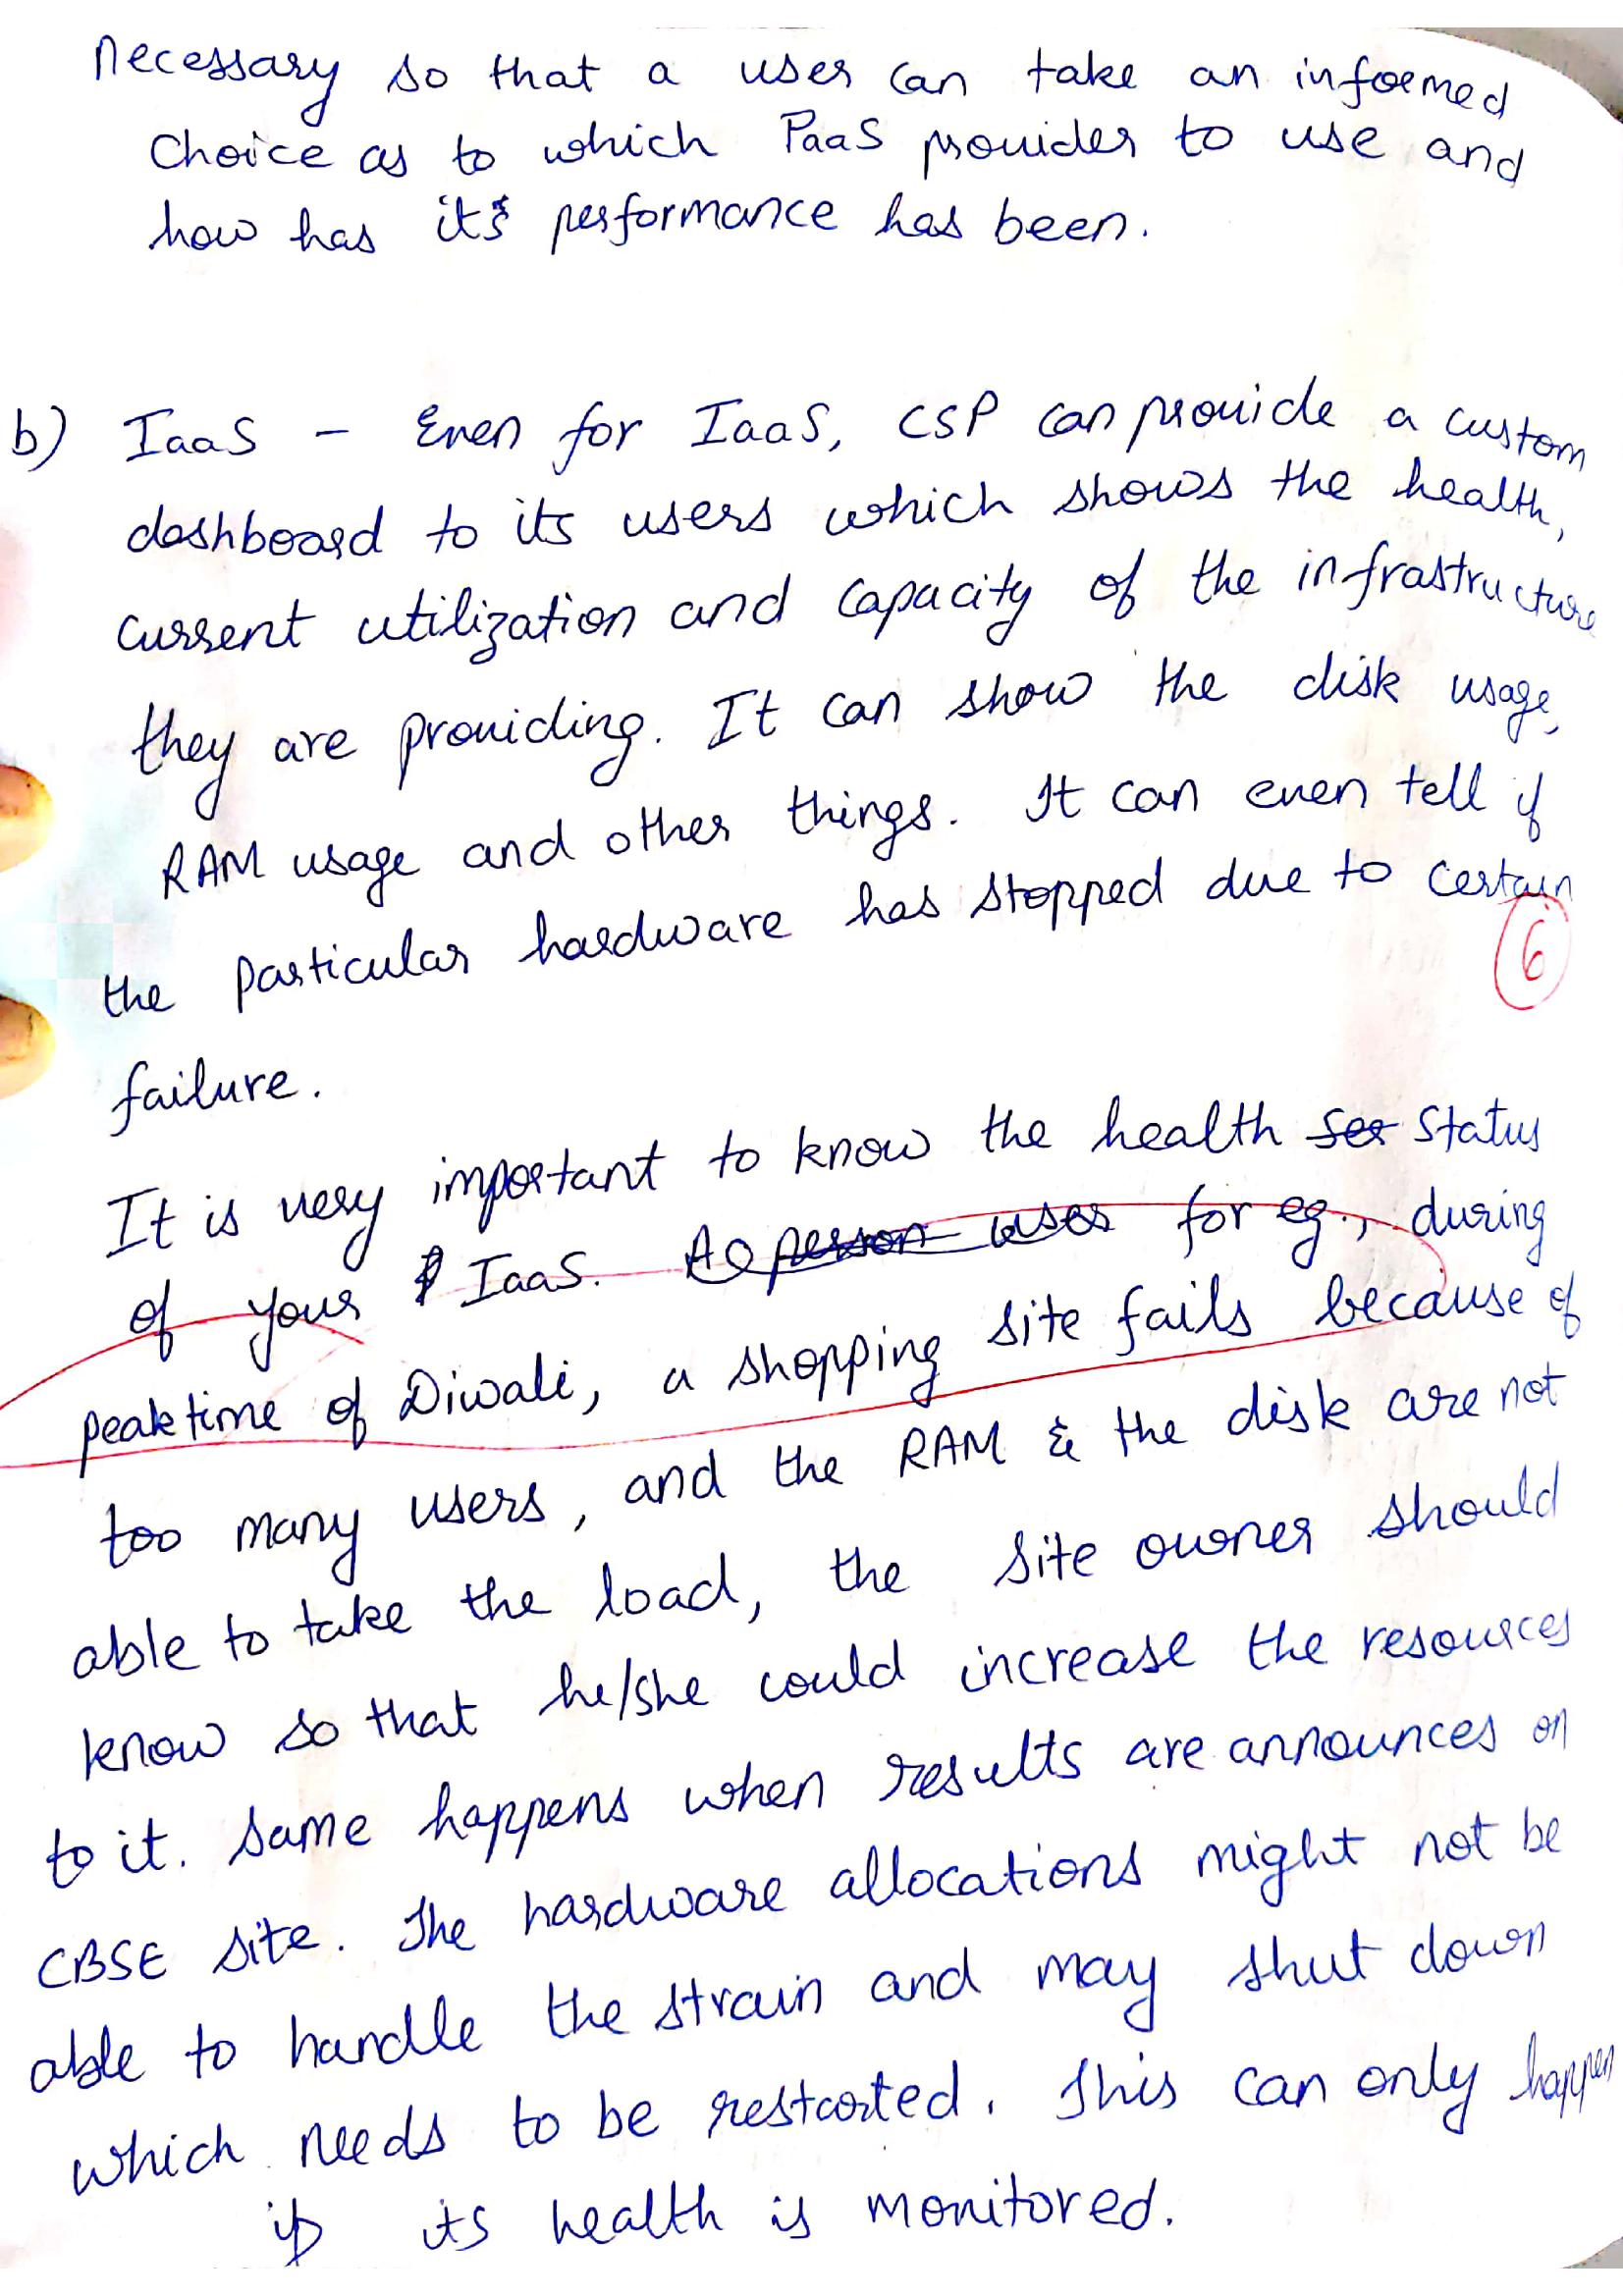 necessary so that a user can take an informed
choice as to which PaaS provider to use and
how has its performance has been.
b) IaaS - Even for IaaS, CSP can provide a custom
dashboard to its users which shows the health,
current utilization and capacity of the infrastructure
they are providing. It can show the disk usage,
RAM usage and other things. It can even tell if
the particular hardware has stopped due to certain
6
failure.
It is very important to know the health ser status
of your IaaS. A person uses for eg., during
peak time of Diwali, a shopping site fails because of
too many users, and the RAM & the disk are not
able to take the load, the site owner should
know so that he/she could increase the resources
to it. Same happens when results are announces on
CBSE site. The hardware allocations might not be
able to handle the strain and may shut down
which needs to be restarted. This can only happen
if its health is monitored.